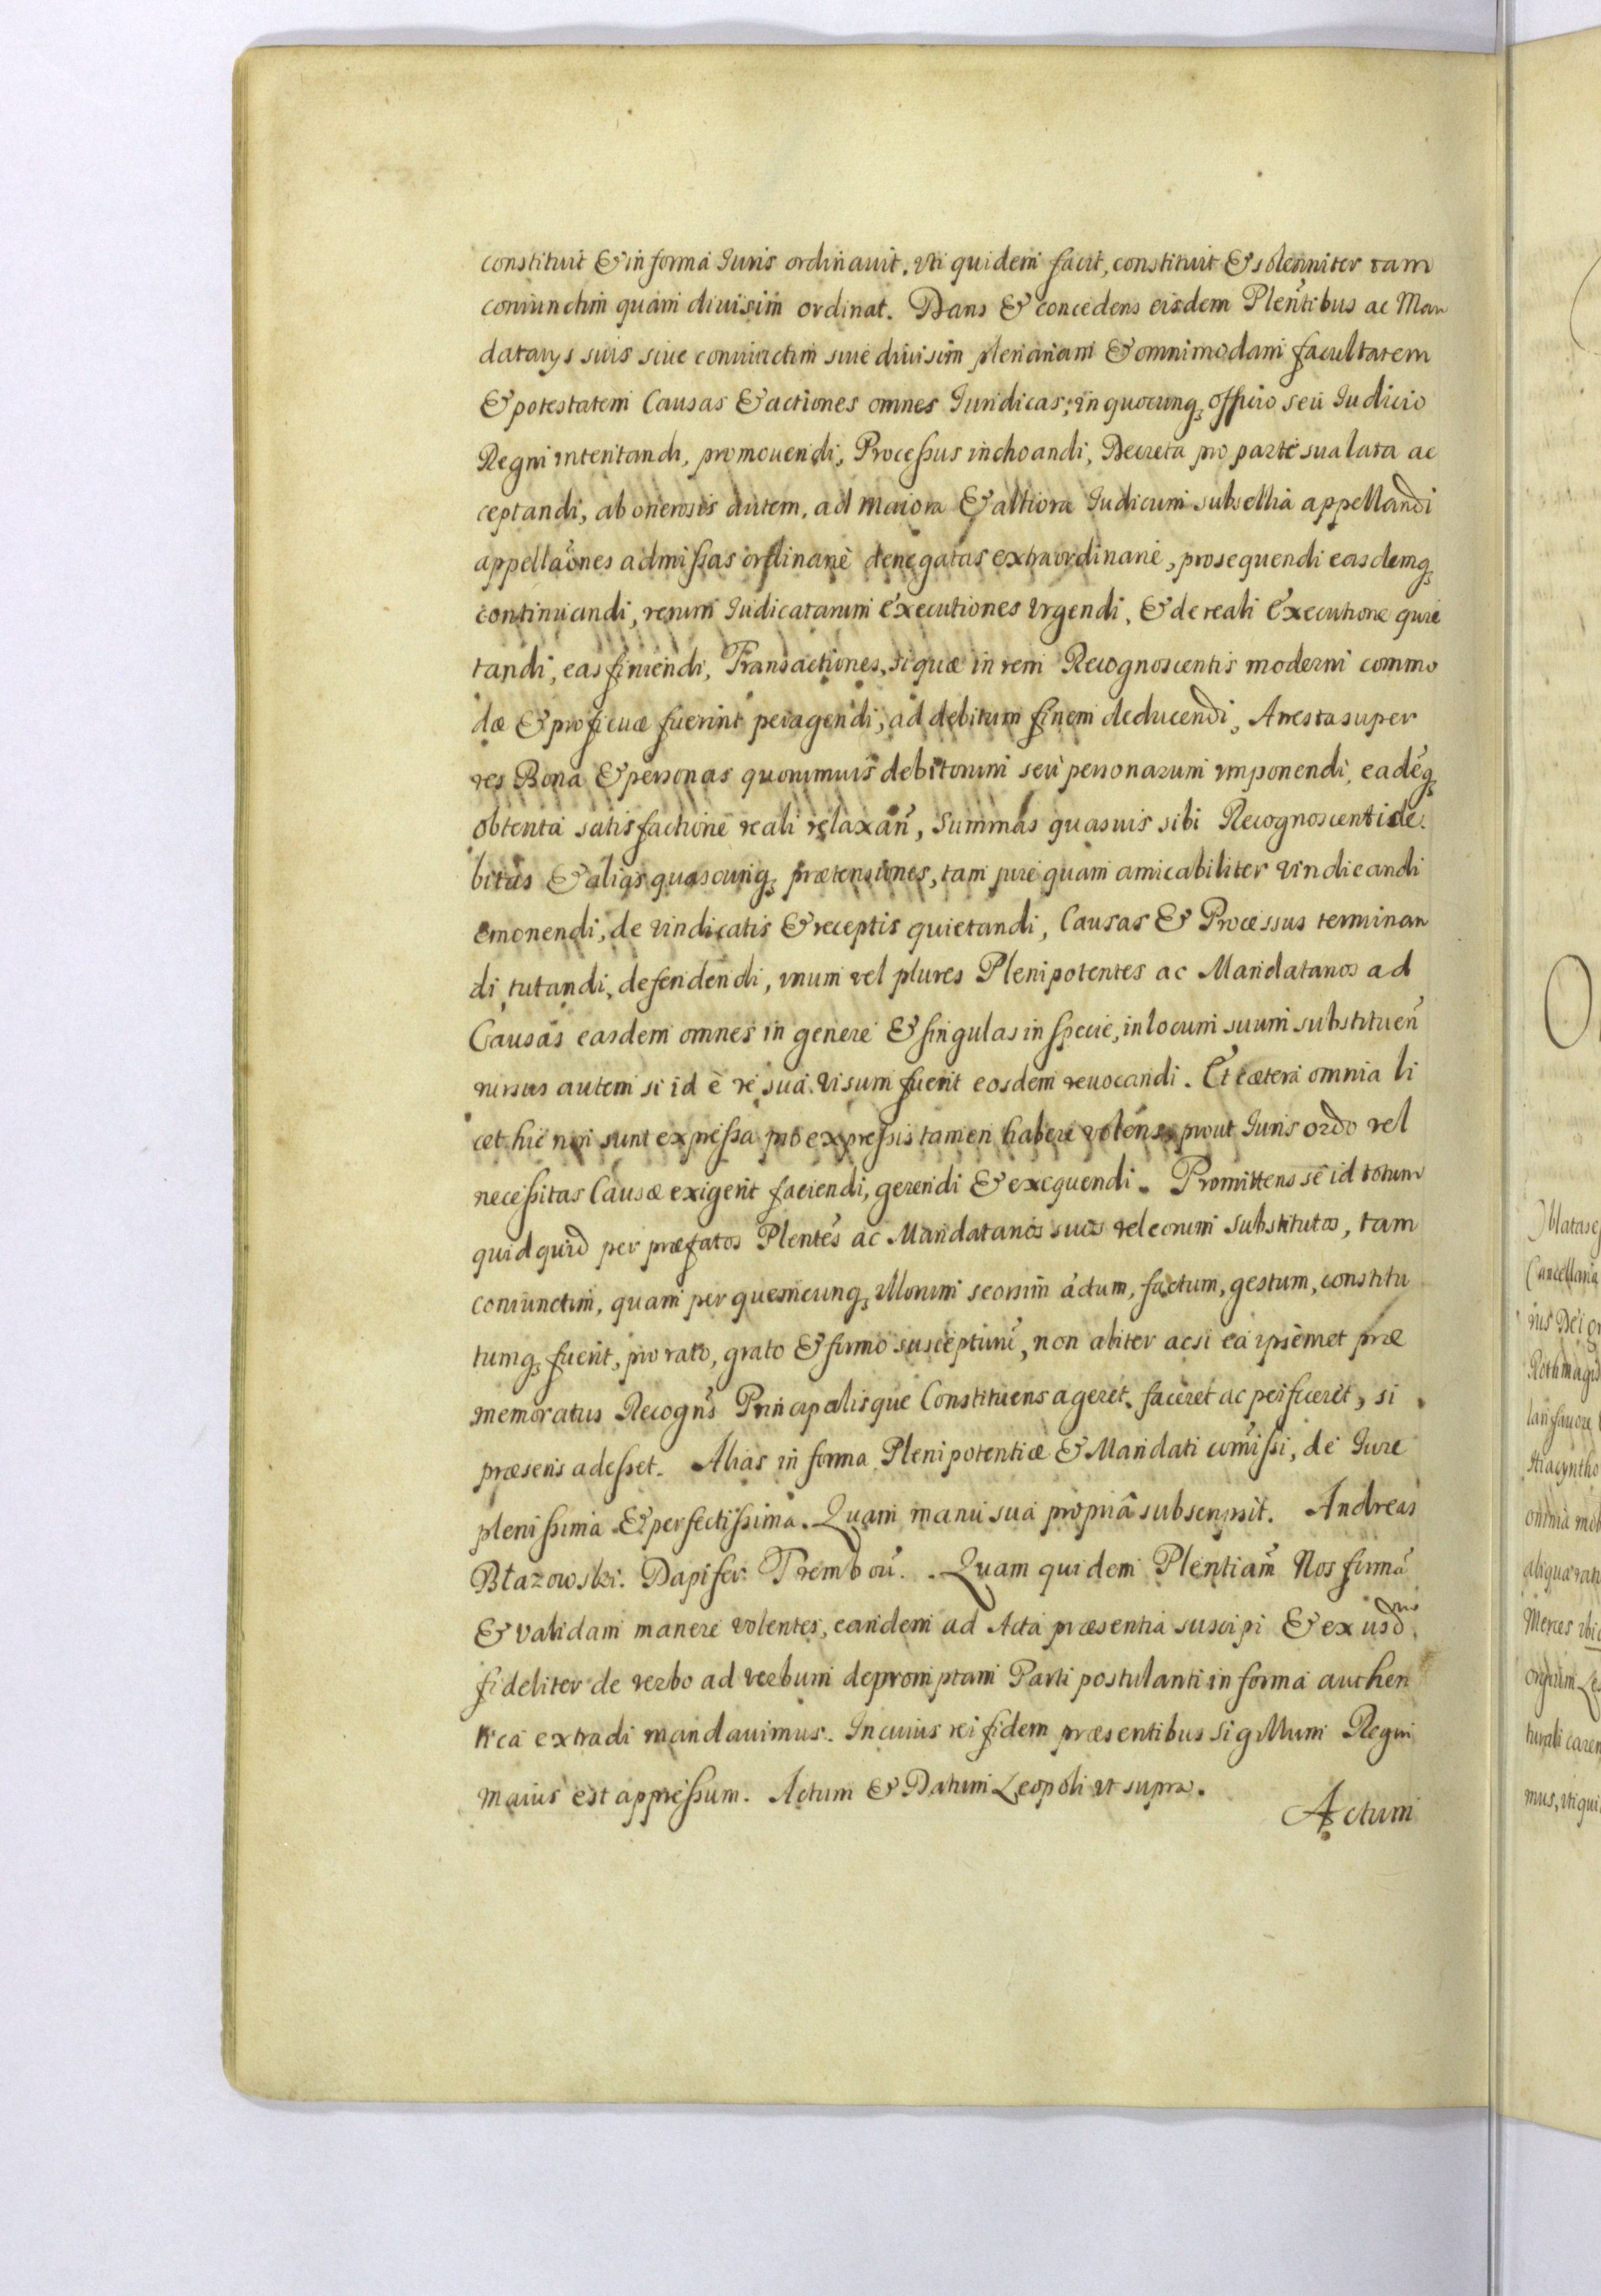 constituit & in forma Iuris ordinauit, Vti quidem facit, constituit & solenniter tam
coniunctim quàm diuisim ordinat. Dans & concedens eisdem Plen̄tibus ac Man
datarys suis siue coniunctim siue diuisim plenariam & omnimodam facultatem
& potestatem Causas & actiones omnes Iuridicas, in quocunq, officio seu Iudicio
Regni intentandi, promouendi, Processus inchoandi, Decreta pro parte sua lata ac
ceptandi, ab onerosis autem, ad maiora & altiora Iudicum subsellia appellandi
appellāones admissas ordinariè denegatas extraordinariè, prosequendi easdemq,
continuandi, rerum Iudicatarum executiones Vrgendi, & de reali Executione quie
tandi, eas finiendi, Transactiones, si quæ in rem Recognoscentis moderni commo
dæ & proficuæ fuerint peragendi, ad debitum finem deducendi, Arresta super
res Bona & personas quorumuis debitorum seu personarum imponendi, eadēq,
obtenta satisfactione reali relaxan̄, Summas quasuis sibi Recognoscenti de.
bitas & alias quascunq, prætensiones, tam jure quam amicabiliter Vindicandi
emonendi, de Vindicatis & receptis quietandi, Causas & Processus terminan
di tutandi, defendendi, vnum vel plures Plenipotentes ac Mandatarios ad
Causas easdem omnes in genere & singulas in specie, in locum suum substituen̄
rursus autem si id è re sua Visum fuerit eosdem reuocandi. Et cætera omnia li
cet hic non sunt expressa pro expressis tamen habere volēns, prout Iuris ordo vel
necessitas Causæ exigerit faciendi, gerendi & exequendi. Promittens se id totum
quidquid per præfatos Plentēs ac Mandatarios suos vel eorum Substitutos, tam
coniunctim, quam per quemcunq, illorum seorsim actum, factum, gestum, constitu
tumq, fuerit, pro rato, grato & firmo suscepturū, non aliter acsi ea ipsemet præ
memoratus Recogn̄s Principalisque Constituens ageret, faceret ac perficeret, si
præsens adesset. Alias in forma Plenipotentiæ & Mandati com̄issi, de Iure
plenissima & perfectissima. Quam manu sua propriâ subscripsit. Andreas
Błazowski. Dapifer Trembou̅. Quam quidem Plentiam̄ Nos firmā
& validam manere volentes, eandem ad Acta præsentia suscipi & ex iisd̄
fideliter de verbo ad verbum depromptam Parti postulanti in forma authen
tica extradi mandauimus. In cuius rei fidem præsentibus sigillum Regni
maius est appressum. Actum & Datum Leopoli vt supra.
Actum
Cancellaria